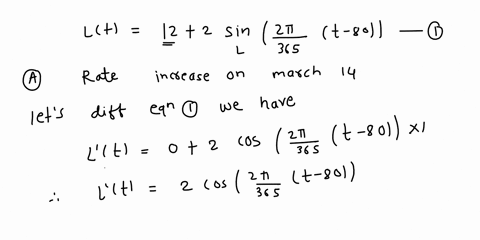 L(t) = 12 + 2 sin (2π/365 (t-80)) — ①
Ⓐ Rate increase on march 14
let's diff eqn ① we have
L'(t) = 0 + 2 cos (2π/365 (t-80)) x1
∴ L'(t) = 2 cos (2π/365 (t-80))